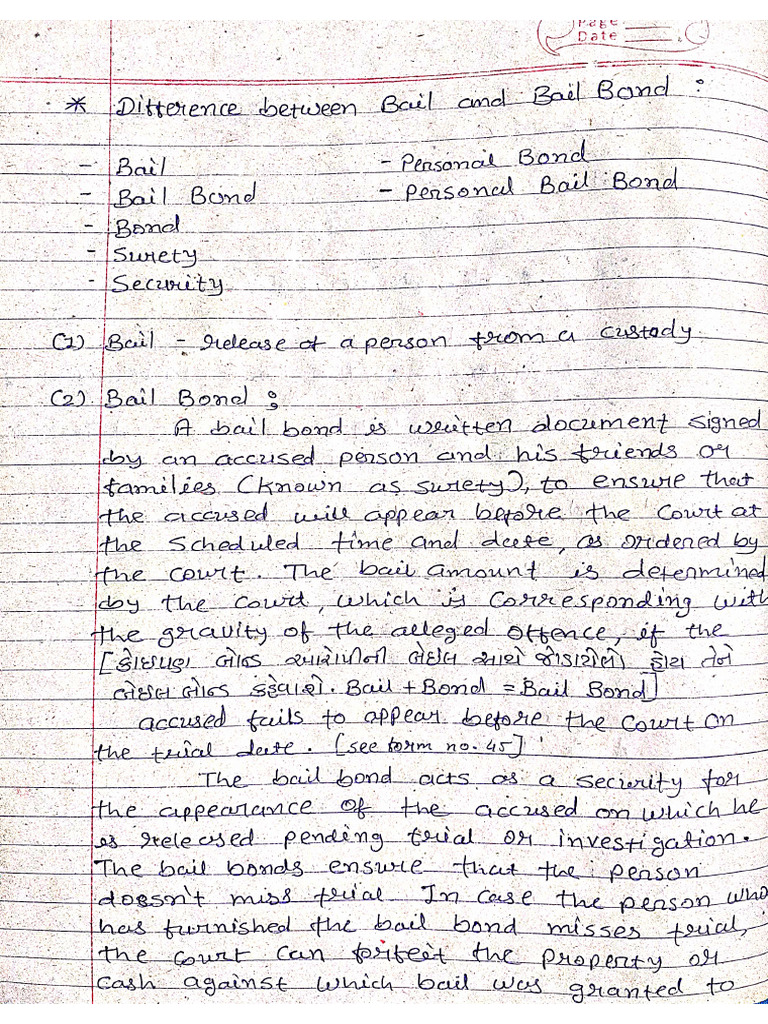 Page
Date
* Difference between Bail and Bail Bond :
- Bail - Personal Bond
- Bail Bond - Personal Bail Bond
- Bond
- Surety
- Security
(1) Bail - release of a person from a custody.
(2) Bail Bond :
A bail bond is written document signed
by an accused person and his friends or
families (known as surety), to ensure that
the accused will appear before the Court at
the scheduled time and date, as ordered by
the court. The bail amount is determined
by the court, which is corresponding with
the gravity of the alleged offence, if the
[કોઇપણ બોન્ડ આરોપીની બેઇલ સાથે જોડાયેલો હોય તેને
બેઇલ બોન્ડ કહેવાશે. Bail + Bond = Bail Bond]
accused fails to appear before the Court on
the trial date. [see form no. 45]
The bail bond acts as a security for
the appearance of the accused on which he
is released pending trial or investigation.
The bail bonds ensure that the person
doesn't miss trial. In case the person who
has furnished the bail bond misses trial,
the court can forfeit the property or
cash against which bail was granted to